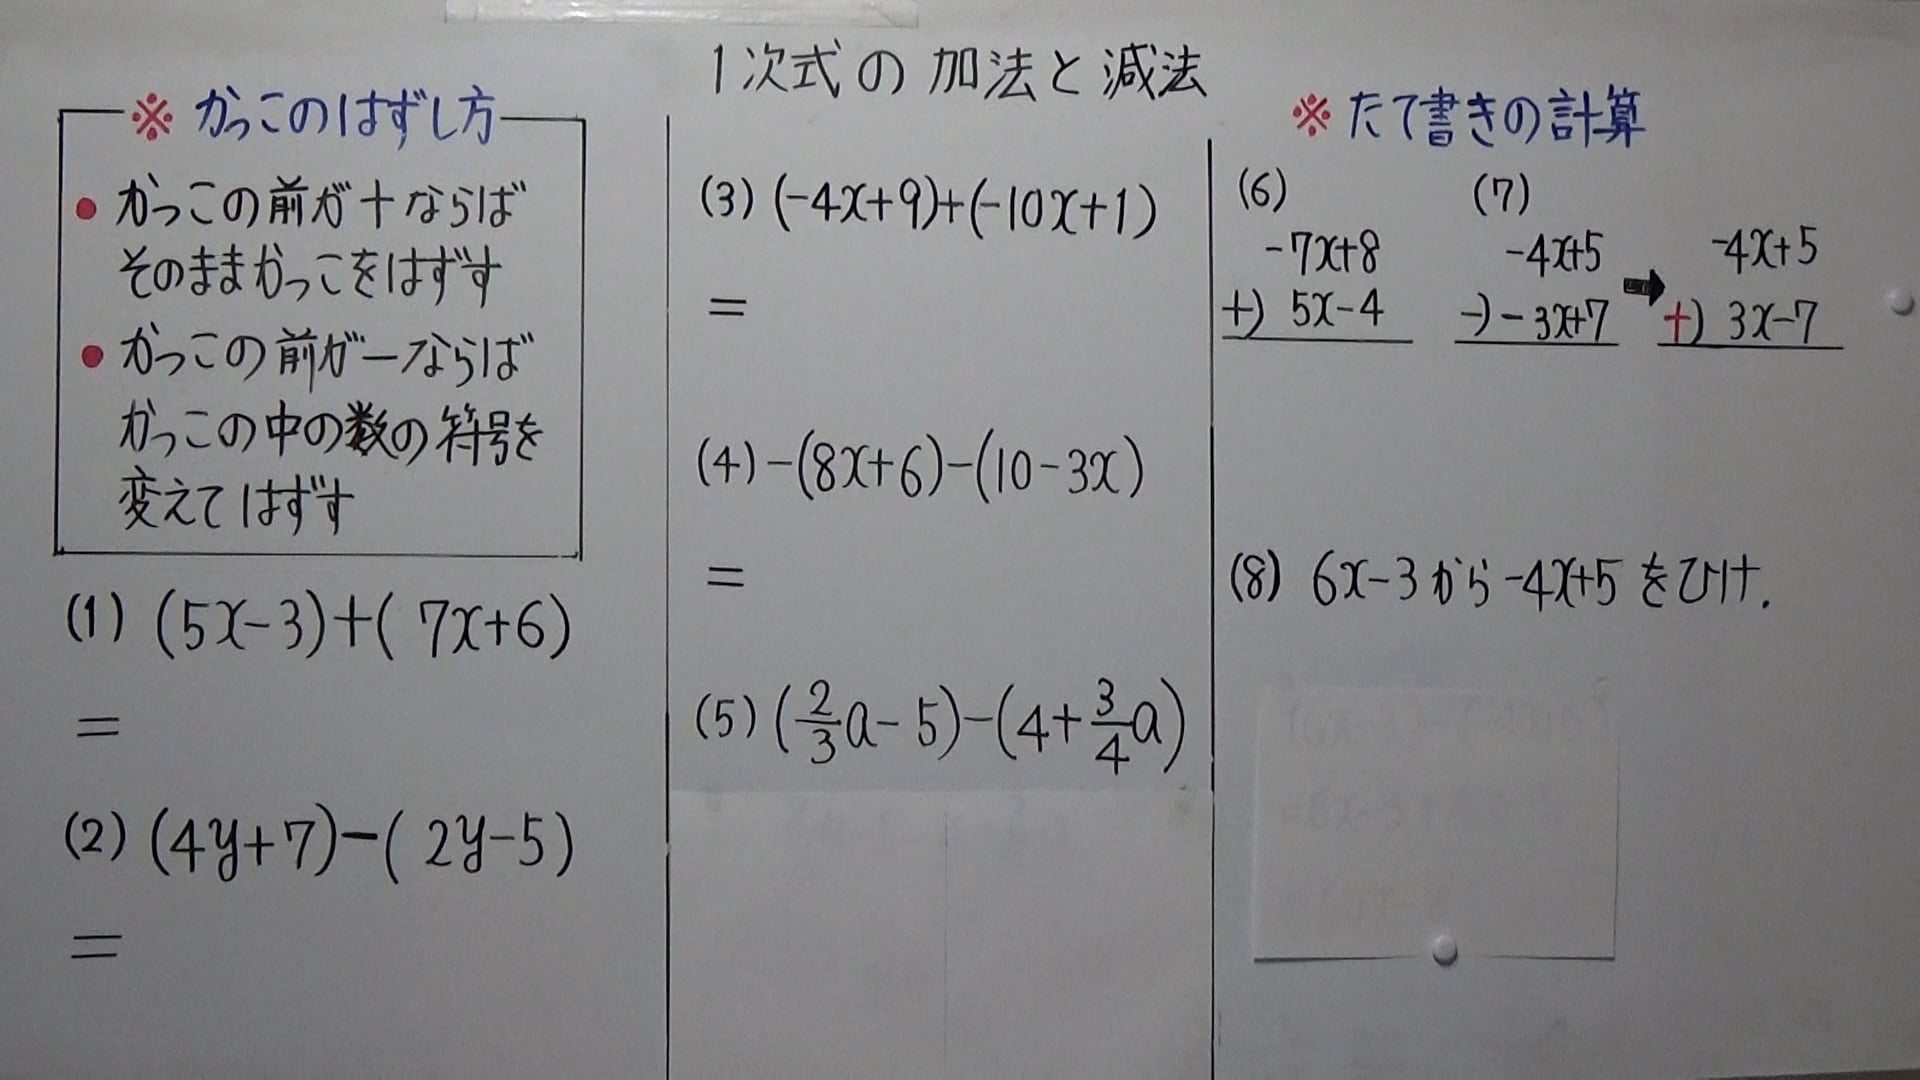 1次式の加法と減法
※ かっこのはずし方
● かっこの前が+ならば
そのままかっこをはずす
● かっこの前が-ならば
かっこの中の数の符号を
変えてはずす
(1) (5x-3)+( 7x+6)
=
(2) (4y+7)-( 2y-5)
=
(3) (-4x+9)+(-10x+1)
=
(4) -(8x+6)-(10-3x)
=
(5) (2/3a-5)-(4+3/4a)
※ たて書きの計算
(6)
-7x+8
+) 5x-4
(7)
-4x+5
-) -3x+7
➡
-4x+5
+) 3x-7
(8) 6x-3から-4x+5をひけ.